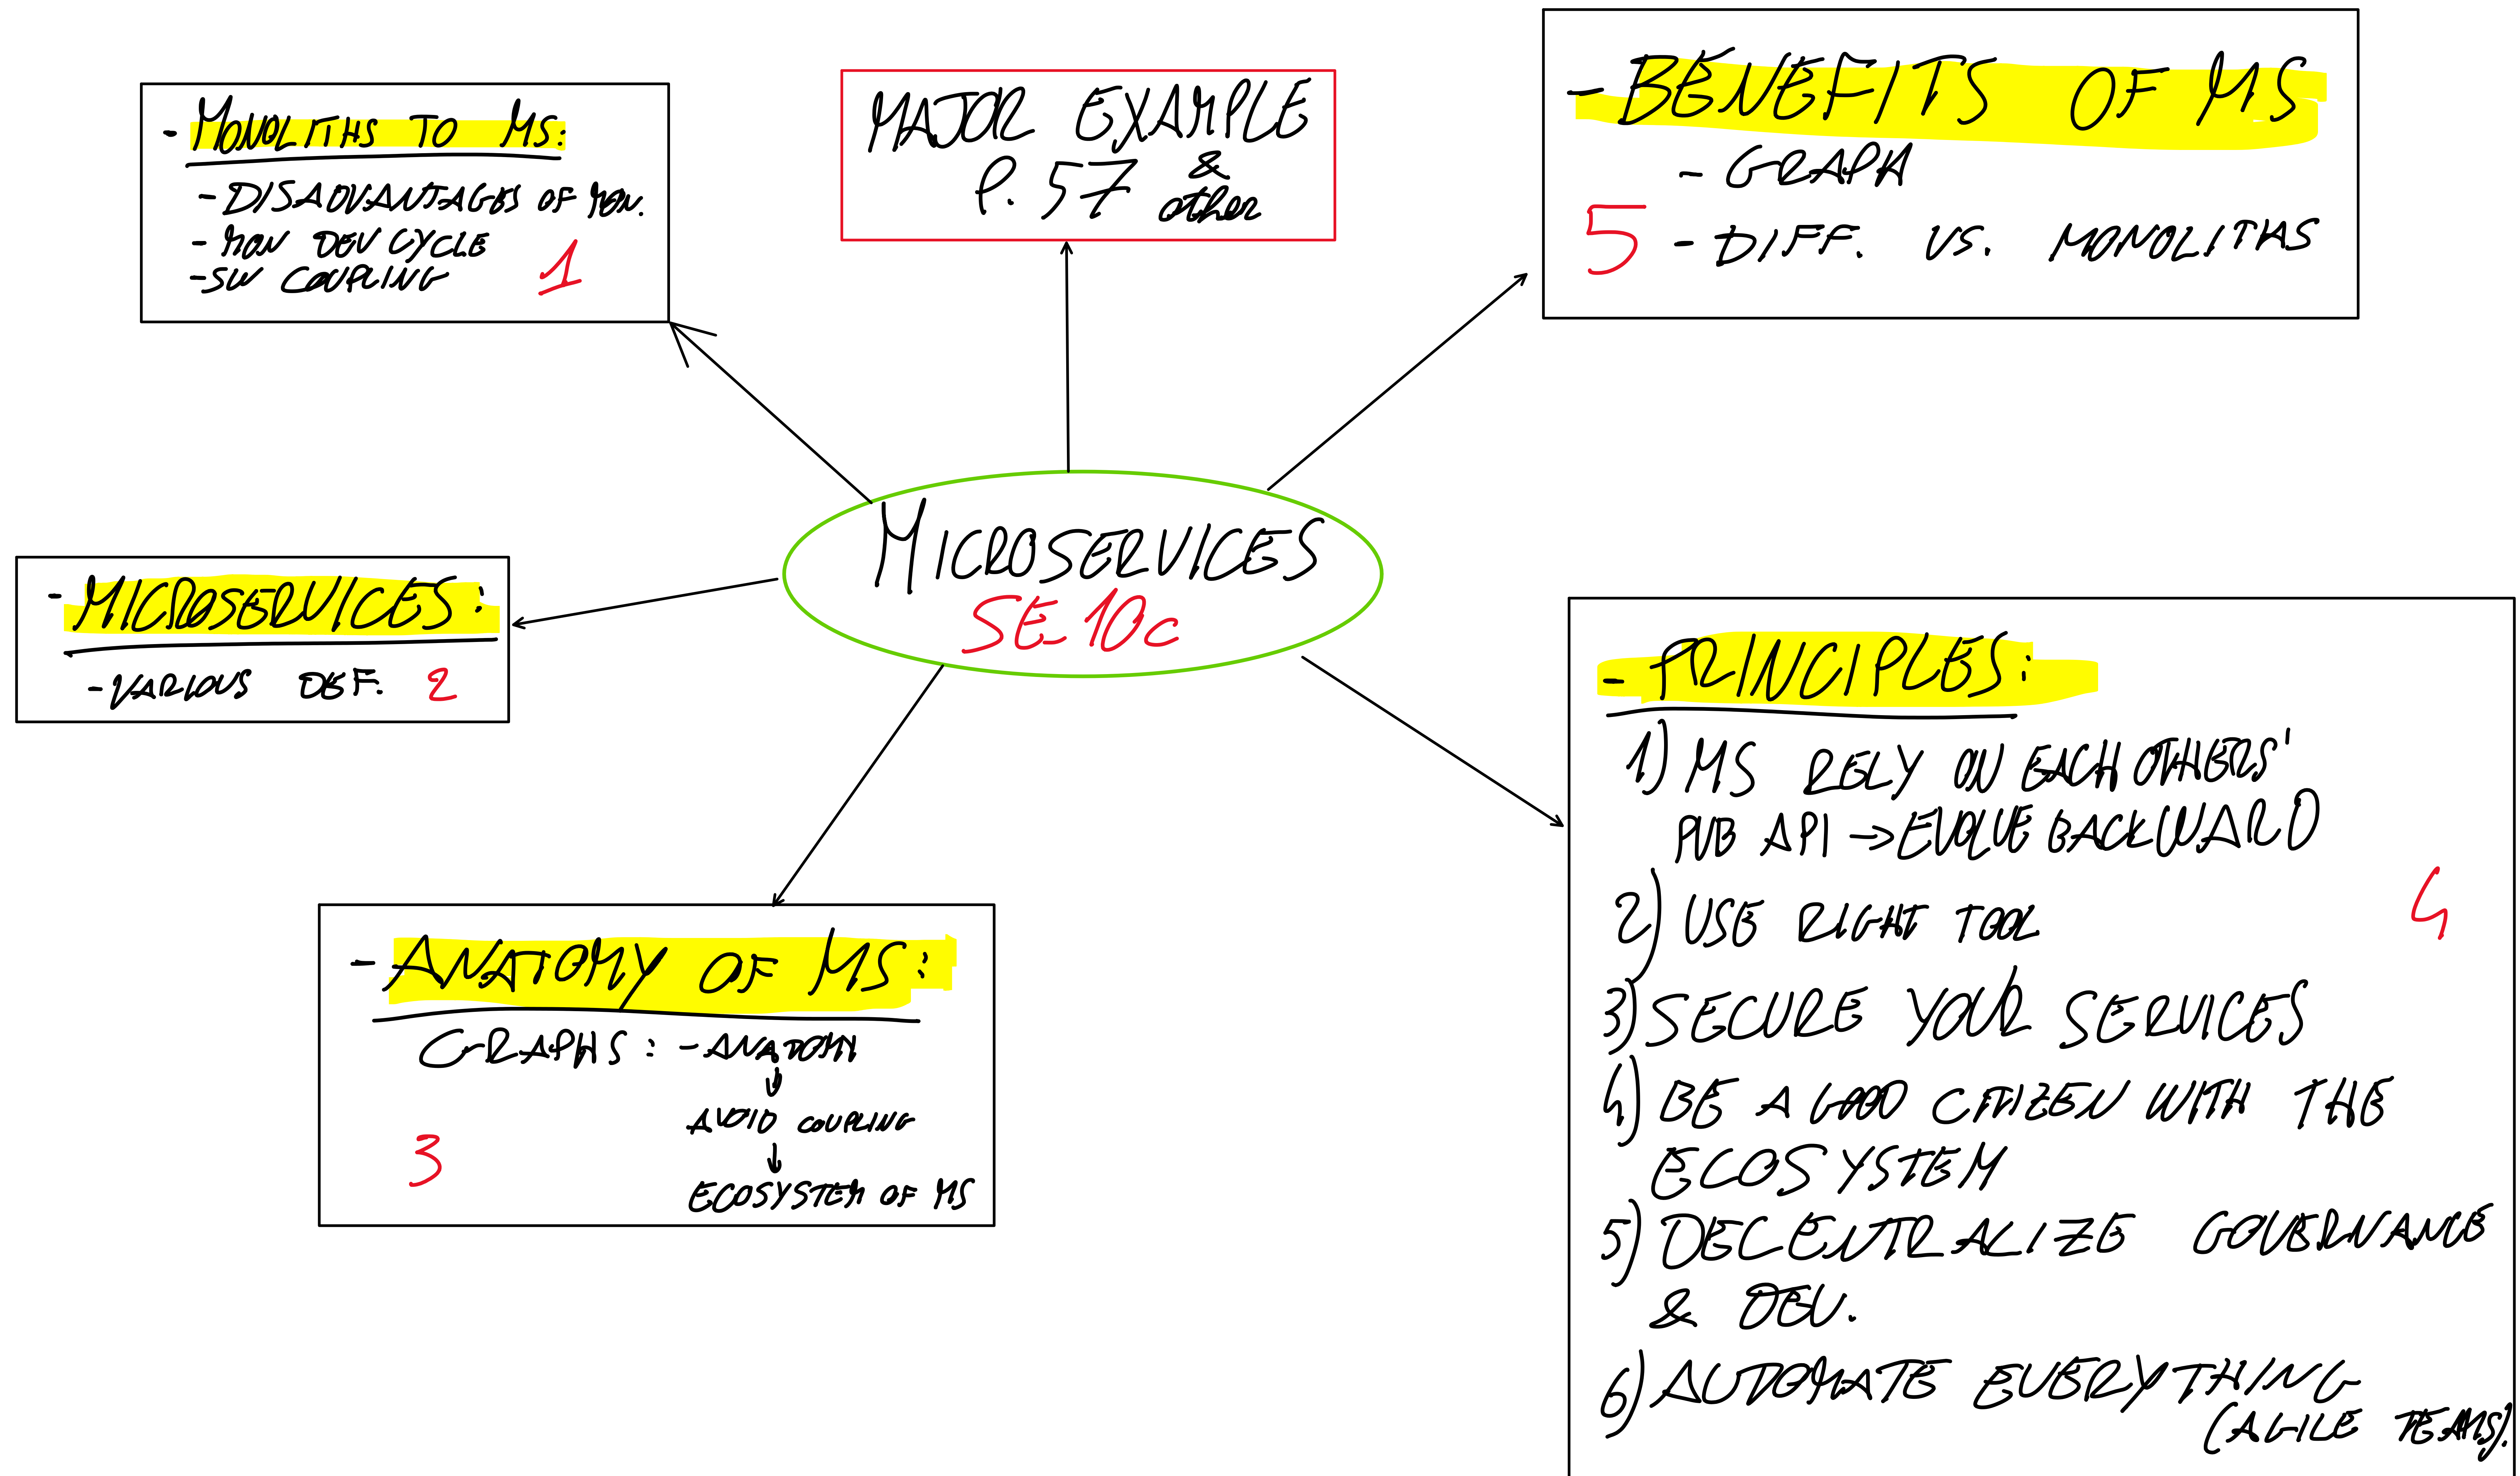 - MONOLITHS TO MS:
- DISADVANTAGES OF MON.
- MON DEV CYCLE
- SW COUPLING
1
MAJOR EXAMPLE
P. 57 & other
- BENEFITS OF MS
- GRAPH
5
- DIFF. VS. MONOLITHS
MICROSERVICES
SE 10c
- MICROSERVICES:
- VARIOUS DEF. 2
- ANATOMY OF MS:
GRAPHS: - ANATOMY
↓
AVOID COUPLING
↓
ECOSYSTEM OF MS
3
- PRINCIPLES:
1) MS RELY ON EACH OTHERS'
PUB API → EVOLVE BACKWARD
4
2) USE RIGHT TOOL
3) SECURE YOUR SERVICES
4) BE A GOOD CITIZEN WITH THE
ECOSYSTEM
5) DECENTRALIZE GOVERNANCE
& DEV.
6) AUTOMATE EVERYTHING
(AGILE TEAMS)